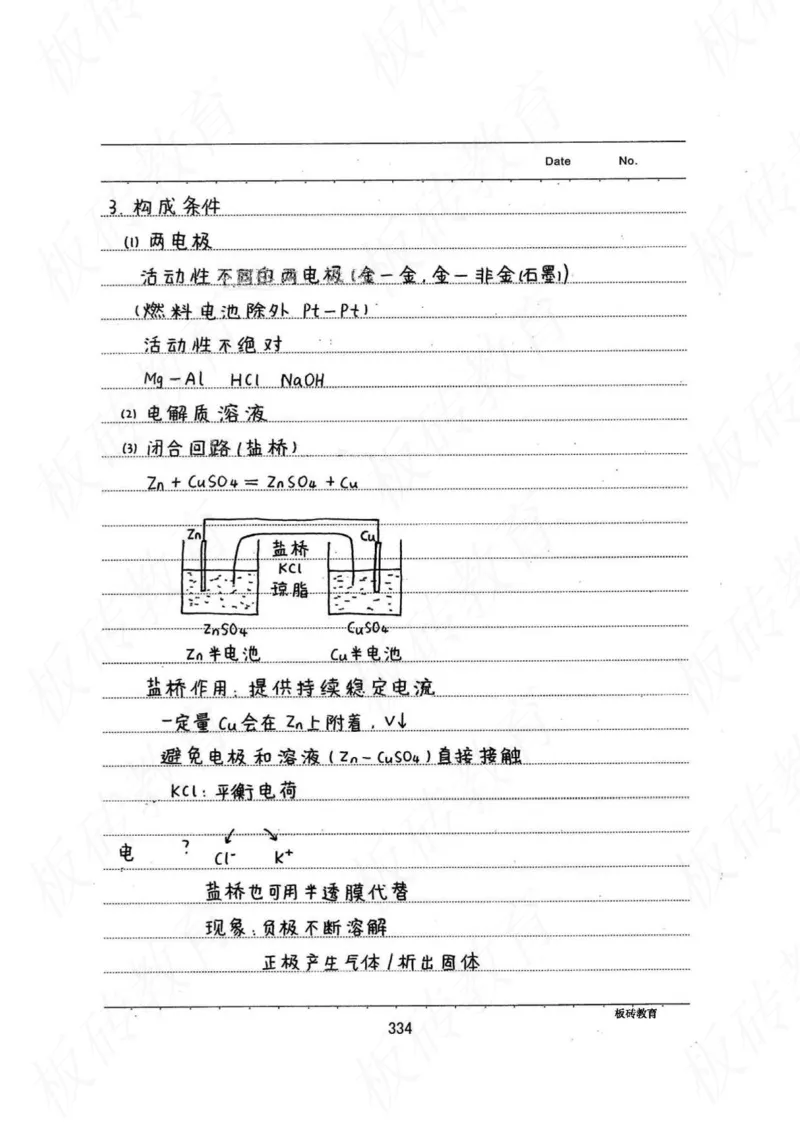 Date No.
3. 构成条件
(1) 两电极
活动性不同的两电极(金—金,金—非金(石墨))
(燃料电池除外 Pt—Pt)
活动性不绝对
Mg—Al HCl NaOH
(2) 电解质溶液
(3) 闭合回路(盐桥)
Zn + CuSO4 = ZnSO4 + Cu
Zn 盐桥 Cu
KCl
琼脂
ZnSO4 CuSO4
Zn半电池 Cu半电池
盐桥作用: 提供持续稳定电流
一定量Cu会在Zn上附着, V↓
避免电极和溶液(Zn—CuSO4)直接接触
KCl: 平衡电荷
↙ ↘
电 ? Cl- K+
盐桥也可用半透膜代替
现象: 负极不断溶解
正极产生气体/析出固体
板砖教育
334